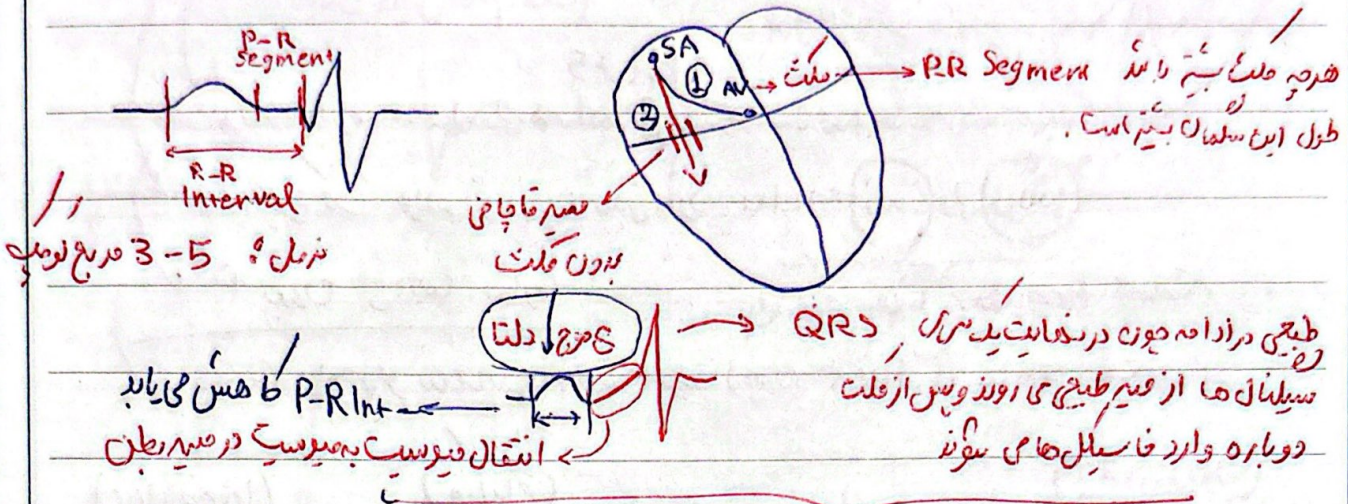 P-R
Segment
R-R
Interval
نرمال: 5-3 مربع کوچک
SA
①
AV → مکث → P.R Segment هرچه مکث بیشتر باشد
طول این سگمان بیشتر است.
②
مسیر قاچاقی
بدون مکث
موج دلتا
QRS طبیعی در ادامه چون در نهایت یک سری
سیگنال ها از مسیر طبیعی می روند و پس از مکث
دوباره وارد فاسیکل ها می شوند
P-R Int کاهش می یابد
انتقال میوسیت به میوسیت در مسیر بطن